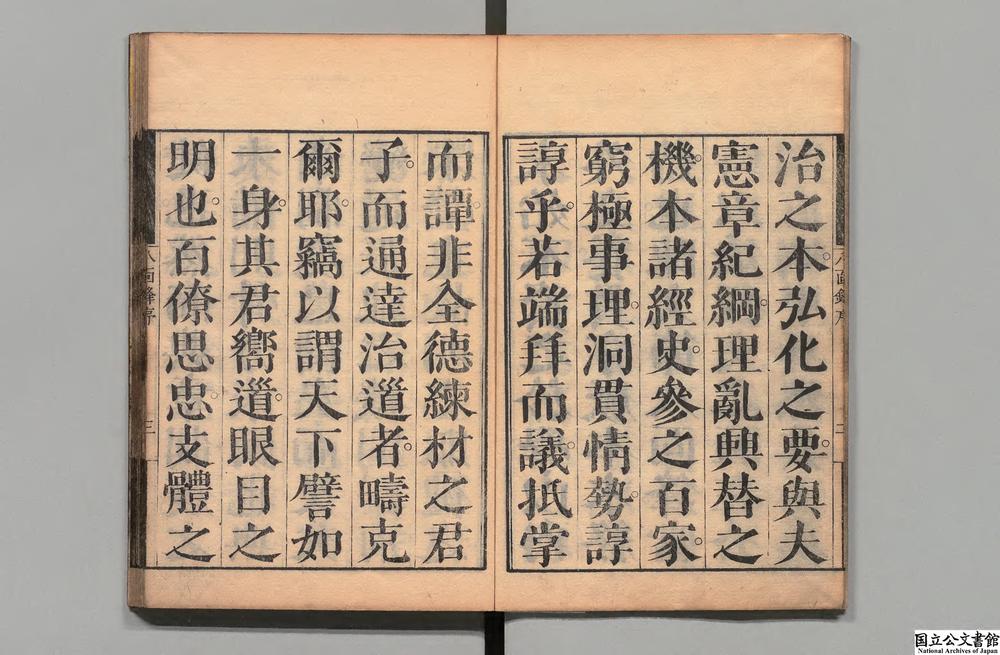 治之本。弘化之要。與夫
憲章紀綱。理亂興替之
機。本諸經史。參之百家。
窮極事理。洞貫情勢。諄
諄乎。若端拜而議抵掌
而譚。非全德練材之君
子。而通達治道者。疇克
爾耶。竊以謂天下譬如
一身。其君嚮道。眼目之
明也。百僚思忠。支體之
八面鋒序
三
国立公文書館
National Archives of Japan